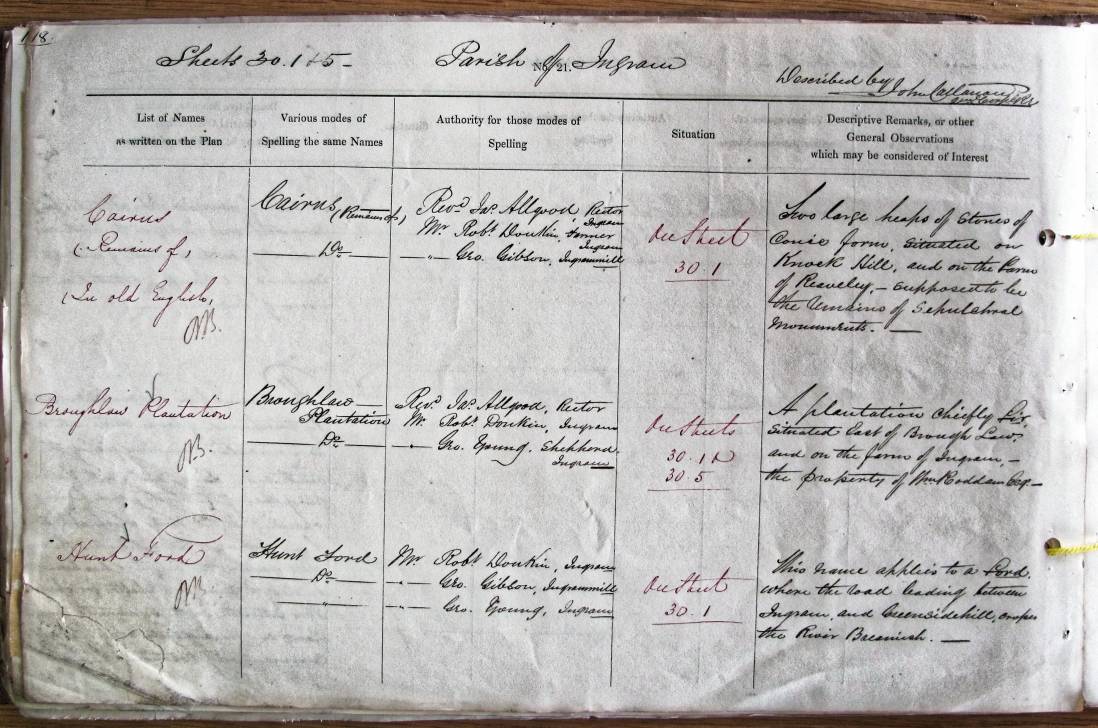 118.
Sheets 30.1 & 5 -
Parish of Ingram
No. 21.
Described by John Callanan
List of Names
as written on the Plan
Various modes of
Spelling the same Names
Authority for those modes of
Spelling
Situation
Descriptive Remarks, or other
General Observations
which may be considered of Interest
Cairns
(Remains of)
(In old English)
Cairns (Remains of)
Do.
Revd. Jas. Allgood Rector
Ingram
Mr. Robt. Donkin, Farmer
Ingram
" Geo. Gibson, Ingrammill
On Sheet
30.1
Two large heaps of Stones of
Conic form, Situated on
Knock Hill, and on the Farm
of Reaveley, - Supposed to be
the Remains of Sepulchral
Monuments. —
Broughlaw Plantation
Broughlaw
Plantation
Do.
Revd. Jas. Allgood, Rector
Mr. Robt. Donkin, Ingram
" Geo. Young, Shepherd.
Ingram
On Sheets
30.1 &
30.5
A plantation chiefly Fir,
Situated East of Brough Law
and on the farm of Ingram, -
the property of Wm. Roddam Esq. -
Hunt Ford
Hunt Ford
Do.
"
Mr. Robt. Donkin, Ingram
" Geo. Gibson, Ingrammill
" Geo. Young, Ingram
On Sheet
30.1
This name applies to a Ford.
where the road leading between
Ingram and Greensidehill, crosses
the River Breamish. —